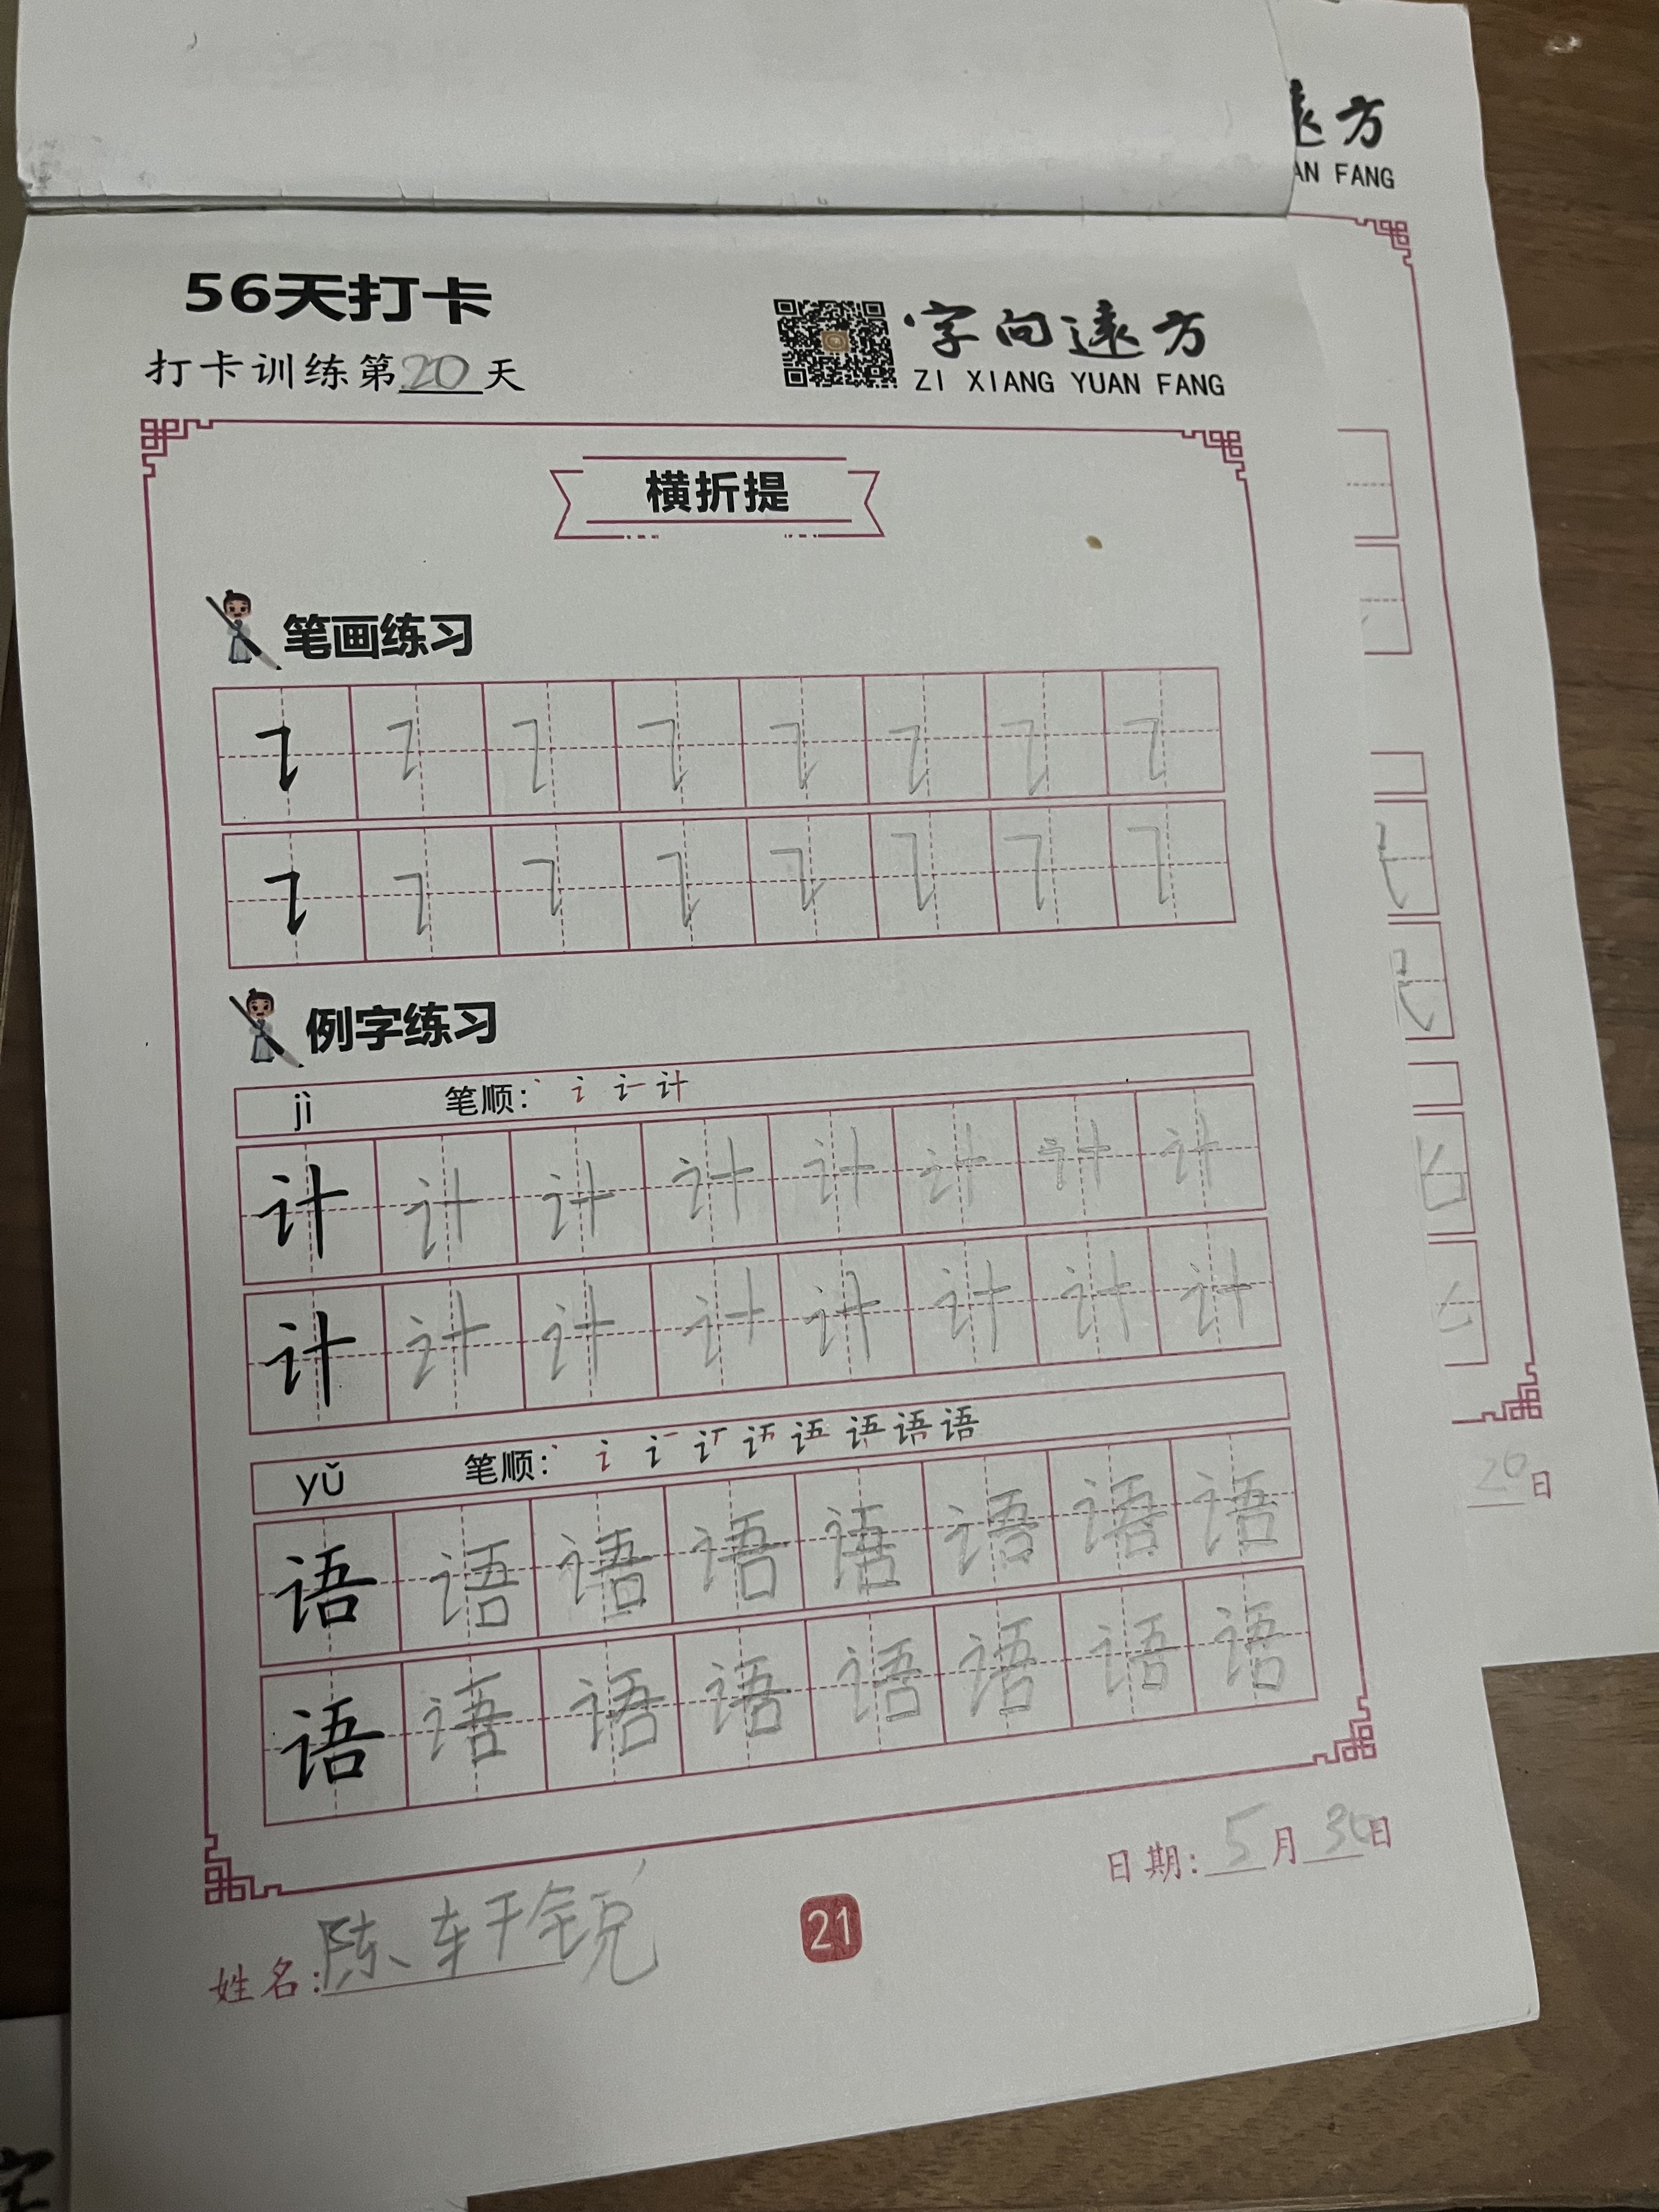 遠方
AN FANG
56天打卡
字向遠方
打卡训练第20天
ZI XIANG YUAN FANG
横折提
笔画练习
例字练习
jì 笔顺：
计 计 计 计 计 计 计 计
计 计 计 计 计 计 计 计
yǔ 笔顺：
语 语 语 语 语 语 语 语
语 语 语 语 语 语 语 语
日期：5月30日
姓名：陈轩锐
21
20日
字